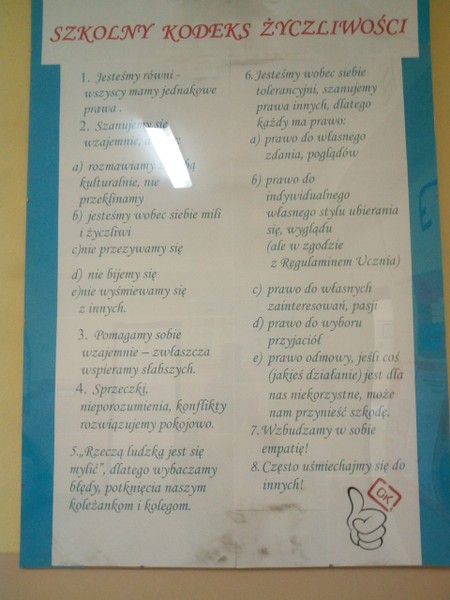 SZKOLNY KODEKS ŻYCZLIWOŚCI
1. Jesteśmy równi -
wszyscy mamy jednakowe
prawa .
2. Szanujemy się
wzajemnie, a
a) rozmawiamy
kulturalnie, nie
przeklinamy
b) jesteśmy wobec siebie mili
i życzliwi
c)nie przezywamy się
d) nie bijemy się
e)nie wyśmiewamy się
z innych.
3. Pomagamy sobie
wzajemnie – zwłaszcza
wspieramy słabszych.
4. Sprzeczki,
nieporozumienia, konflikty
rozwiązujemy pokojowo.
5.„Rzeczą ludzką jest się
mylić", dlatego wybaczamy
błędy, potknięcia naszym
koleżankom i kolegom.
6.Jesteśmy wobec siebie
tolerancyjni, szanujemy
prawa innych, dlatego
każdy ma prawo:
a) prawo do własnego
zdania, poglądów
b) prawo do
indywidualnego
własnego stylu ubierania
się, wyglądu
(ale w zgodzie
z Regulaminem Ucznia)
c) prawo do własnych
zainteresowań, pasji
d) prawo do wyboru
przyjaciół
e) prawo odmowy, jeśli coś
(jakieś działanie) jest dla
nas niekorzystne, może
nam przynieść szkodę.
7.Wzbudzamy w sobie
empatię!
8.Często uśmiechajmy się do
innych!
OK